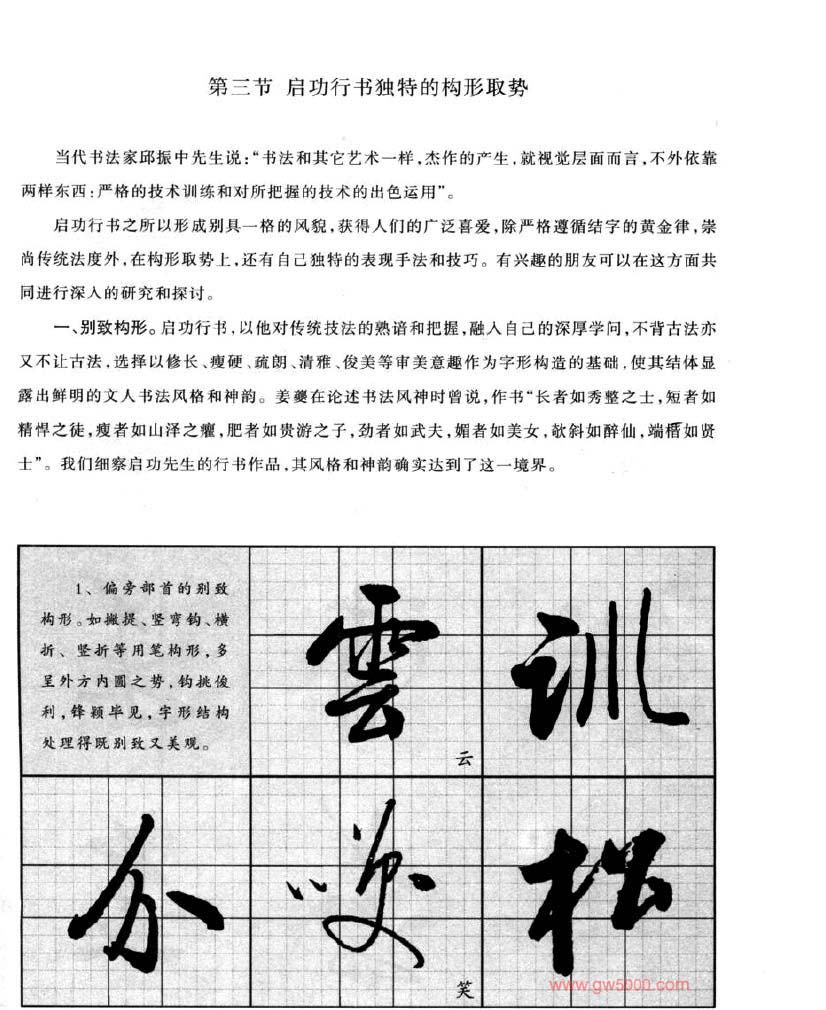 第三节 启功行书独特的构形取势
当代书法家邱振中先生说:“书法和其它艺术一样,杰作的产生,就视觉层面而言,不外依靠
两样东西:严格的技术训练和对所把握的技术的出色运用”。
启功行书之所以形成别具一格的风貌,获得人们的广泛喜爱,除严格遵循结字的黄金律,崇
尚传统法度外,在构形取势上,还有自己独特的表现手法和技巧。有兴趣的朋友可以在这方面共
同进行深入的研究和探讨。
一、别致构形。启功行书,以他对传统技法的熟谙和把握,融入自己的深厚学问,不背古法亦
又不让古法,选择以修长、瘦硬、疏朗、清雅、俊美等审美意趣作为字形构造的基础,使其结体显
露出鲜明的文人书法风格和神韵。姜夔在论述书法风神时曾说,作书“长者如秀整之士,短者如
精悍之徒,瘦者如山泽之癯,肥者如贵游之子,劲者如武夫,媚者如美女,欹斜如醉仙,端楷如贤
士”。我们细察启功先生的行书作品,其风格和神韵确实达到了这一境界。
1、偏旁部首的别致
构形。如撇提、竖弯钩、横
折、竖折等用笔构形,多
呈外方内圆之势,钩挑俊
利,锋颖毕见,字形结构
处理得既别致又美观。
雲 训
云
分 笑 松
笑
www.gw5000.com